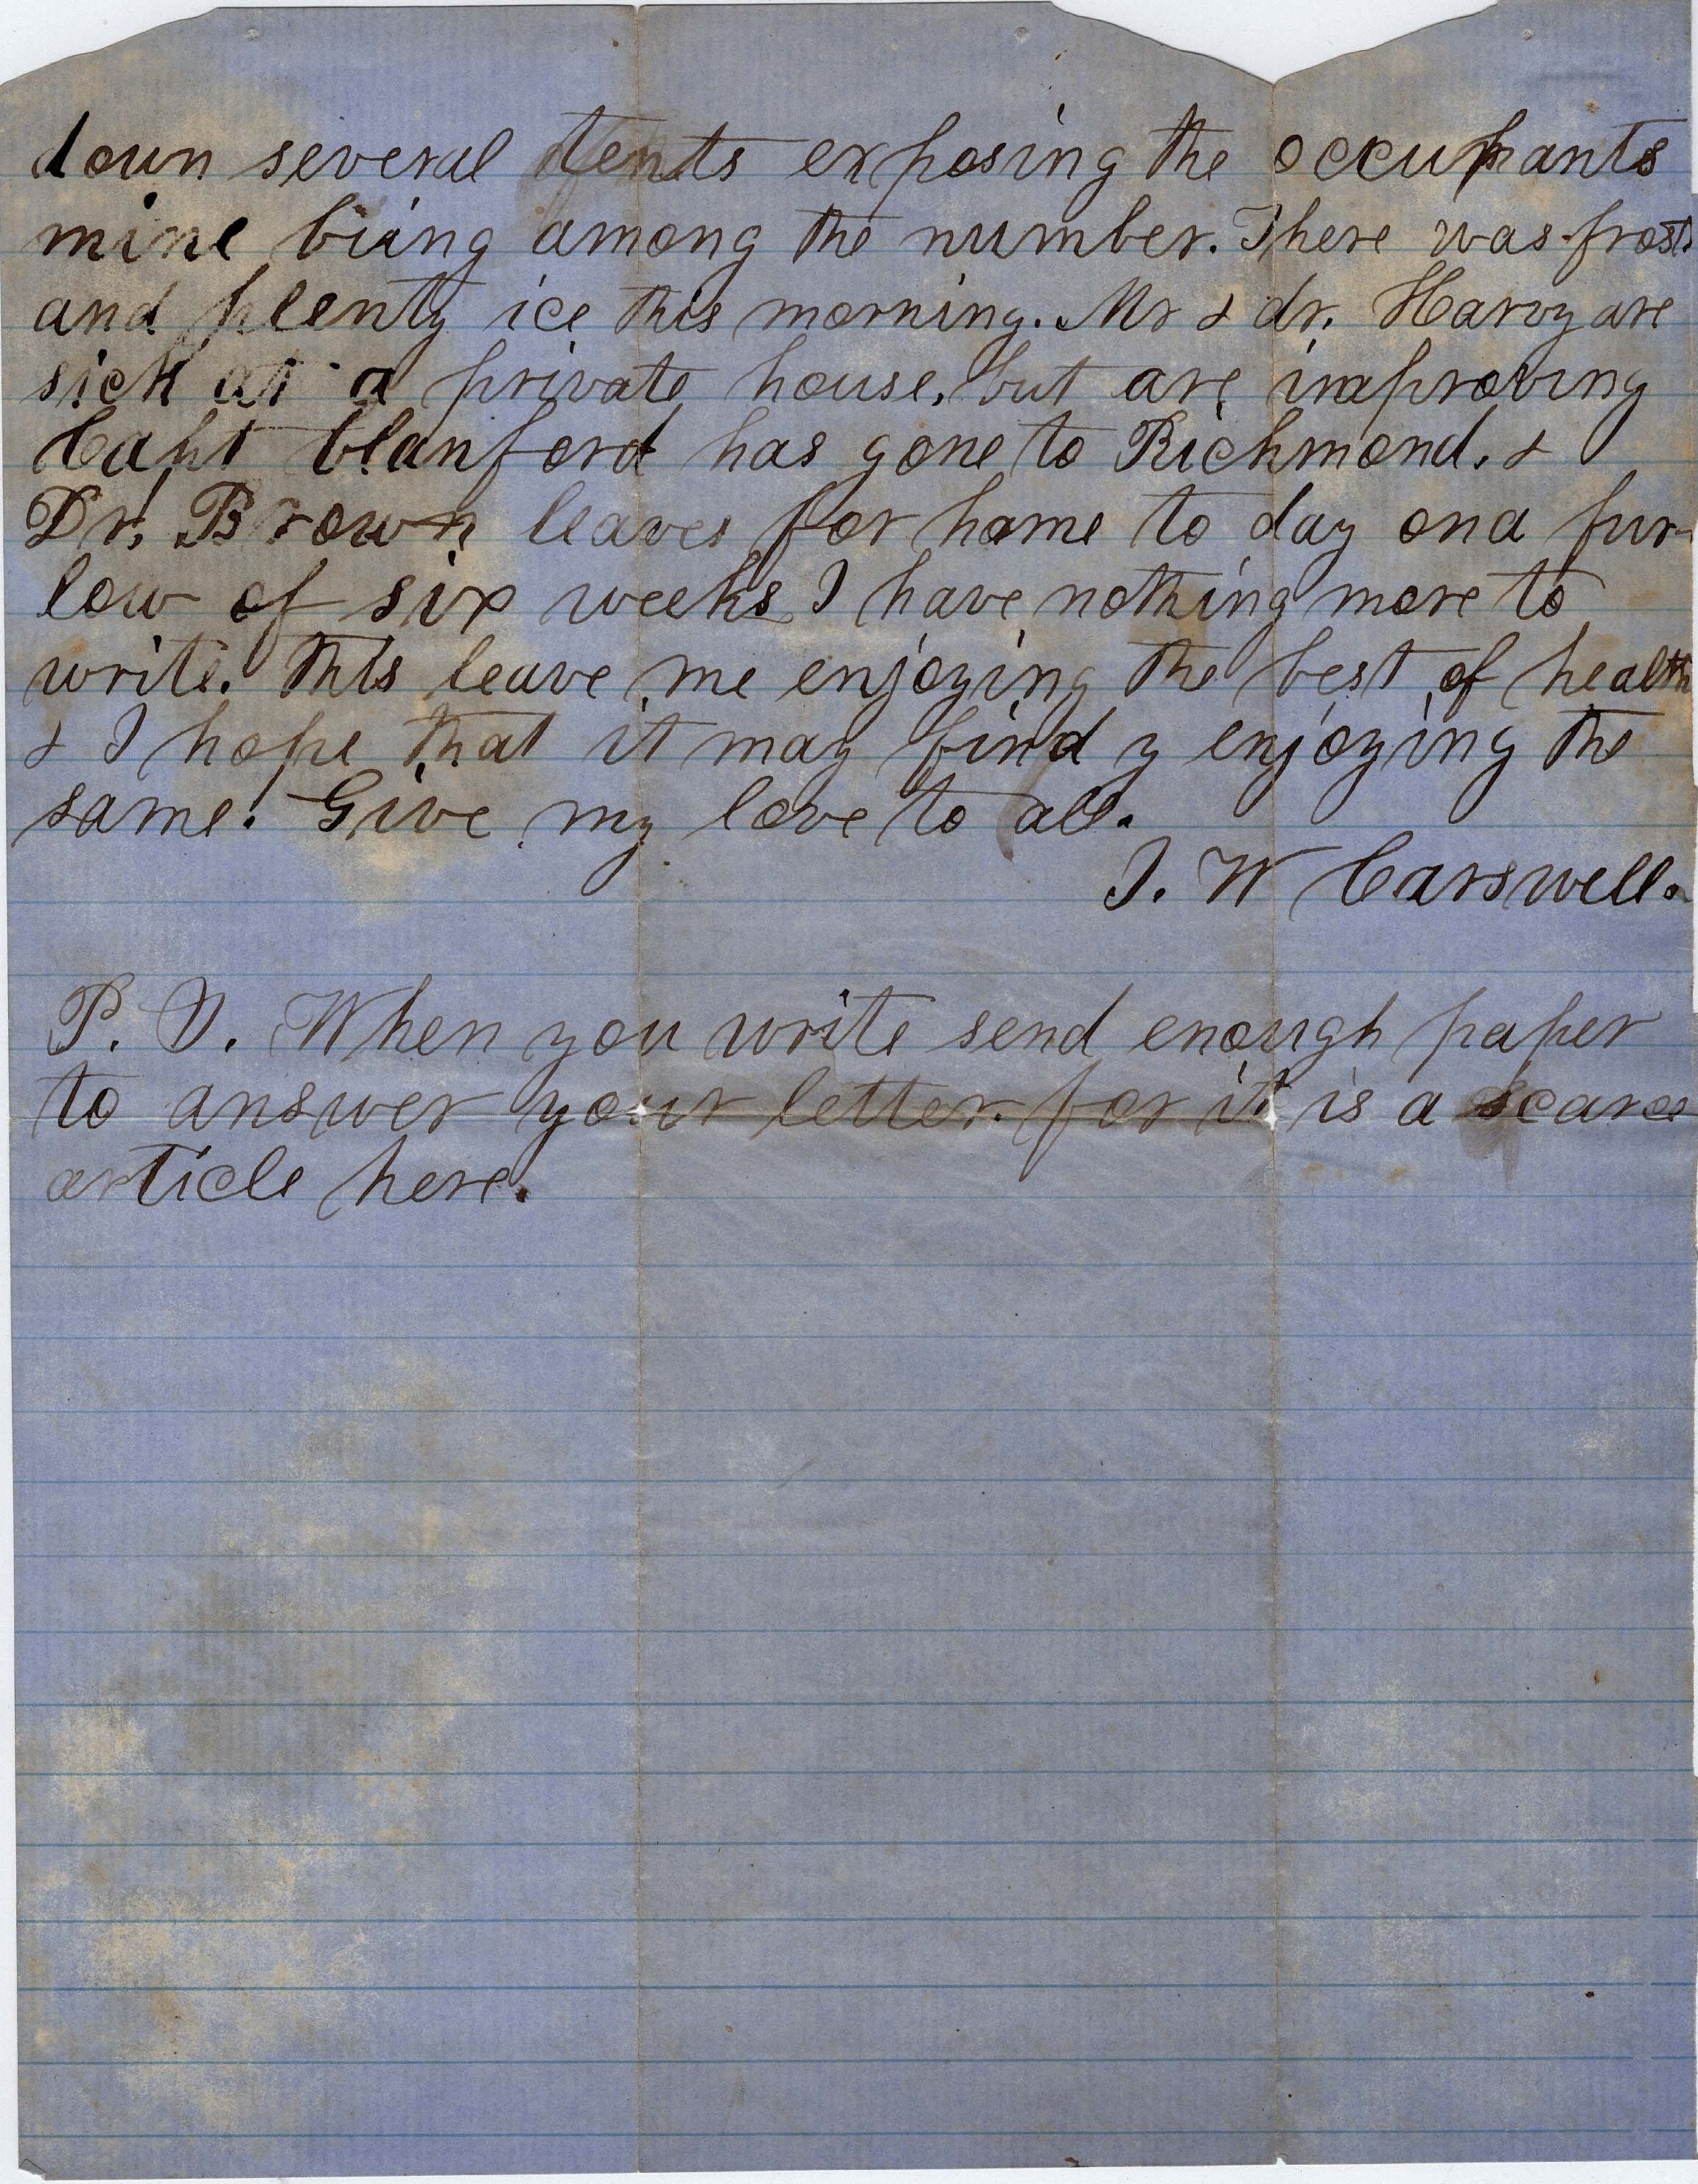 down several tents exposing the occupants
mine being among the number. There was frost
and plenty ice this morning. Mr & dr. Harvy are
sick at a private house, but are improving
Capt Blanford has gone to Richmond. &
Dr. Brown leaves for home to day on a fur-
low of six weeks I have nothing more to
write. this leave me enjoying the best of health
& I hope that it may find y enjoying the
same. Give my love to all.
J. W Carswell.
P. S. When you write send enough paper
to answer your letter. for it is a scarce
article here.